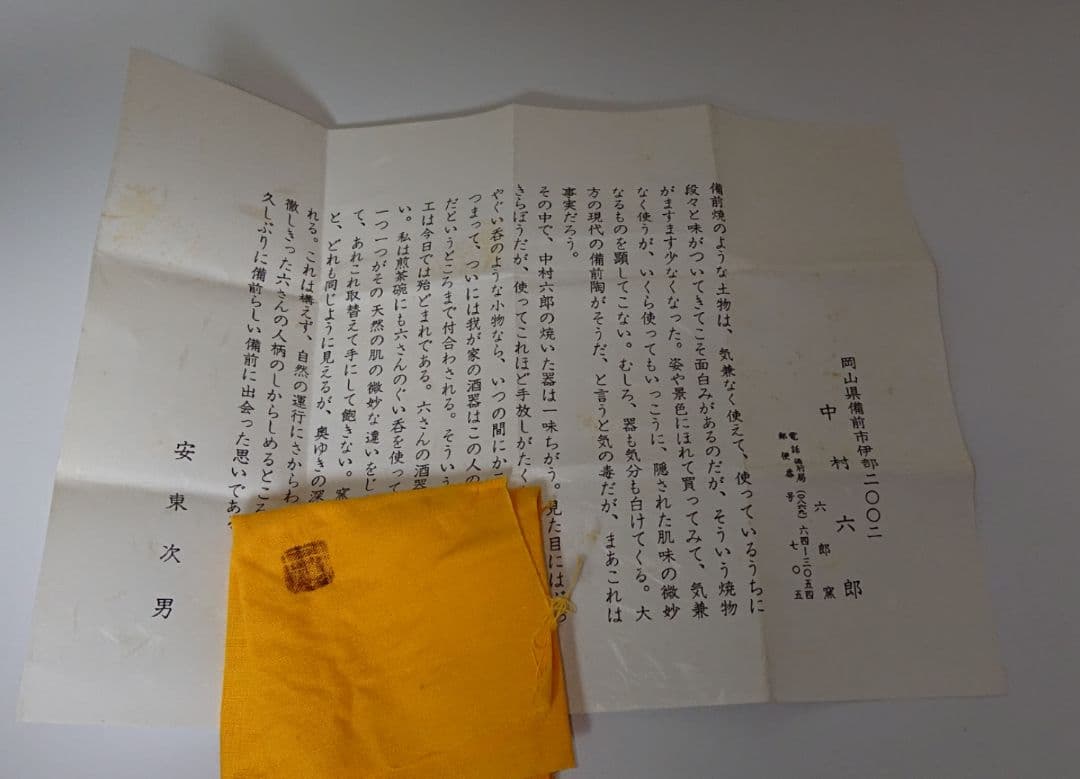 岡山県備前市伊部二〇〇二
中村六郎
六郎窯
電話備前局(〇八六九)六四-三〇五四
郵便番号 七〇五
備前焼のような土物は、気兼なく使えて、使っているうちに
段々と味がついてきてこそ面白みがあるのだが、そういう焼物
がますます少なくなった。姿や景色にほれて買ってみて、気兼
なく使うが、いくら使ってもいっこうに、隠された肌味の微妙
なるものを顕してこない。むしろ、器も気分も白けてくる。大
方の現代の備前陶がそうだ、と言うと気の毒だが、まあこれは
事実だろう。
その中で、中村六郎の焼いた器は一味ちがう。見た目にはぶっ
きらぼうだが、使ってこれほど手放しがたく
やぐい呑のような小物なら、いつの間にか
つまって、ついには我が家の酒器はこの人の
だというところまで付合わされる。そうい
工は今日では殆どまれである。六さんの酒
い。私は煎茶碗にも六さんのぐい呑を使って
一つ一つがその天然の肌の微妙な違いをじ
て、あれこれ取替えて手にして飽きない。窯
と、どれも同じように見えるが、奥ゆきの深
れる。これは構えず、自然の運行にさからわ
徹しきった六さんの人柄のしからしめるところ
久しぶりに備前らしい備前に出会った思いである
安東次男